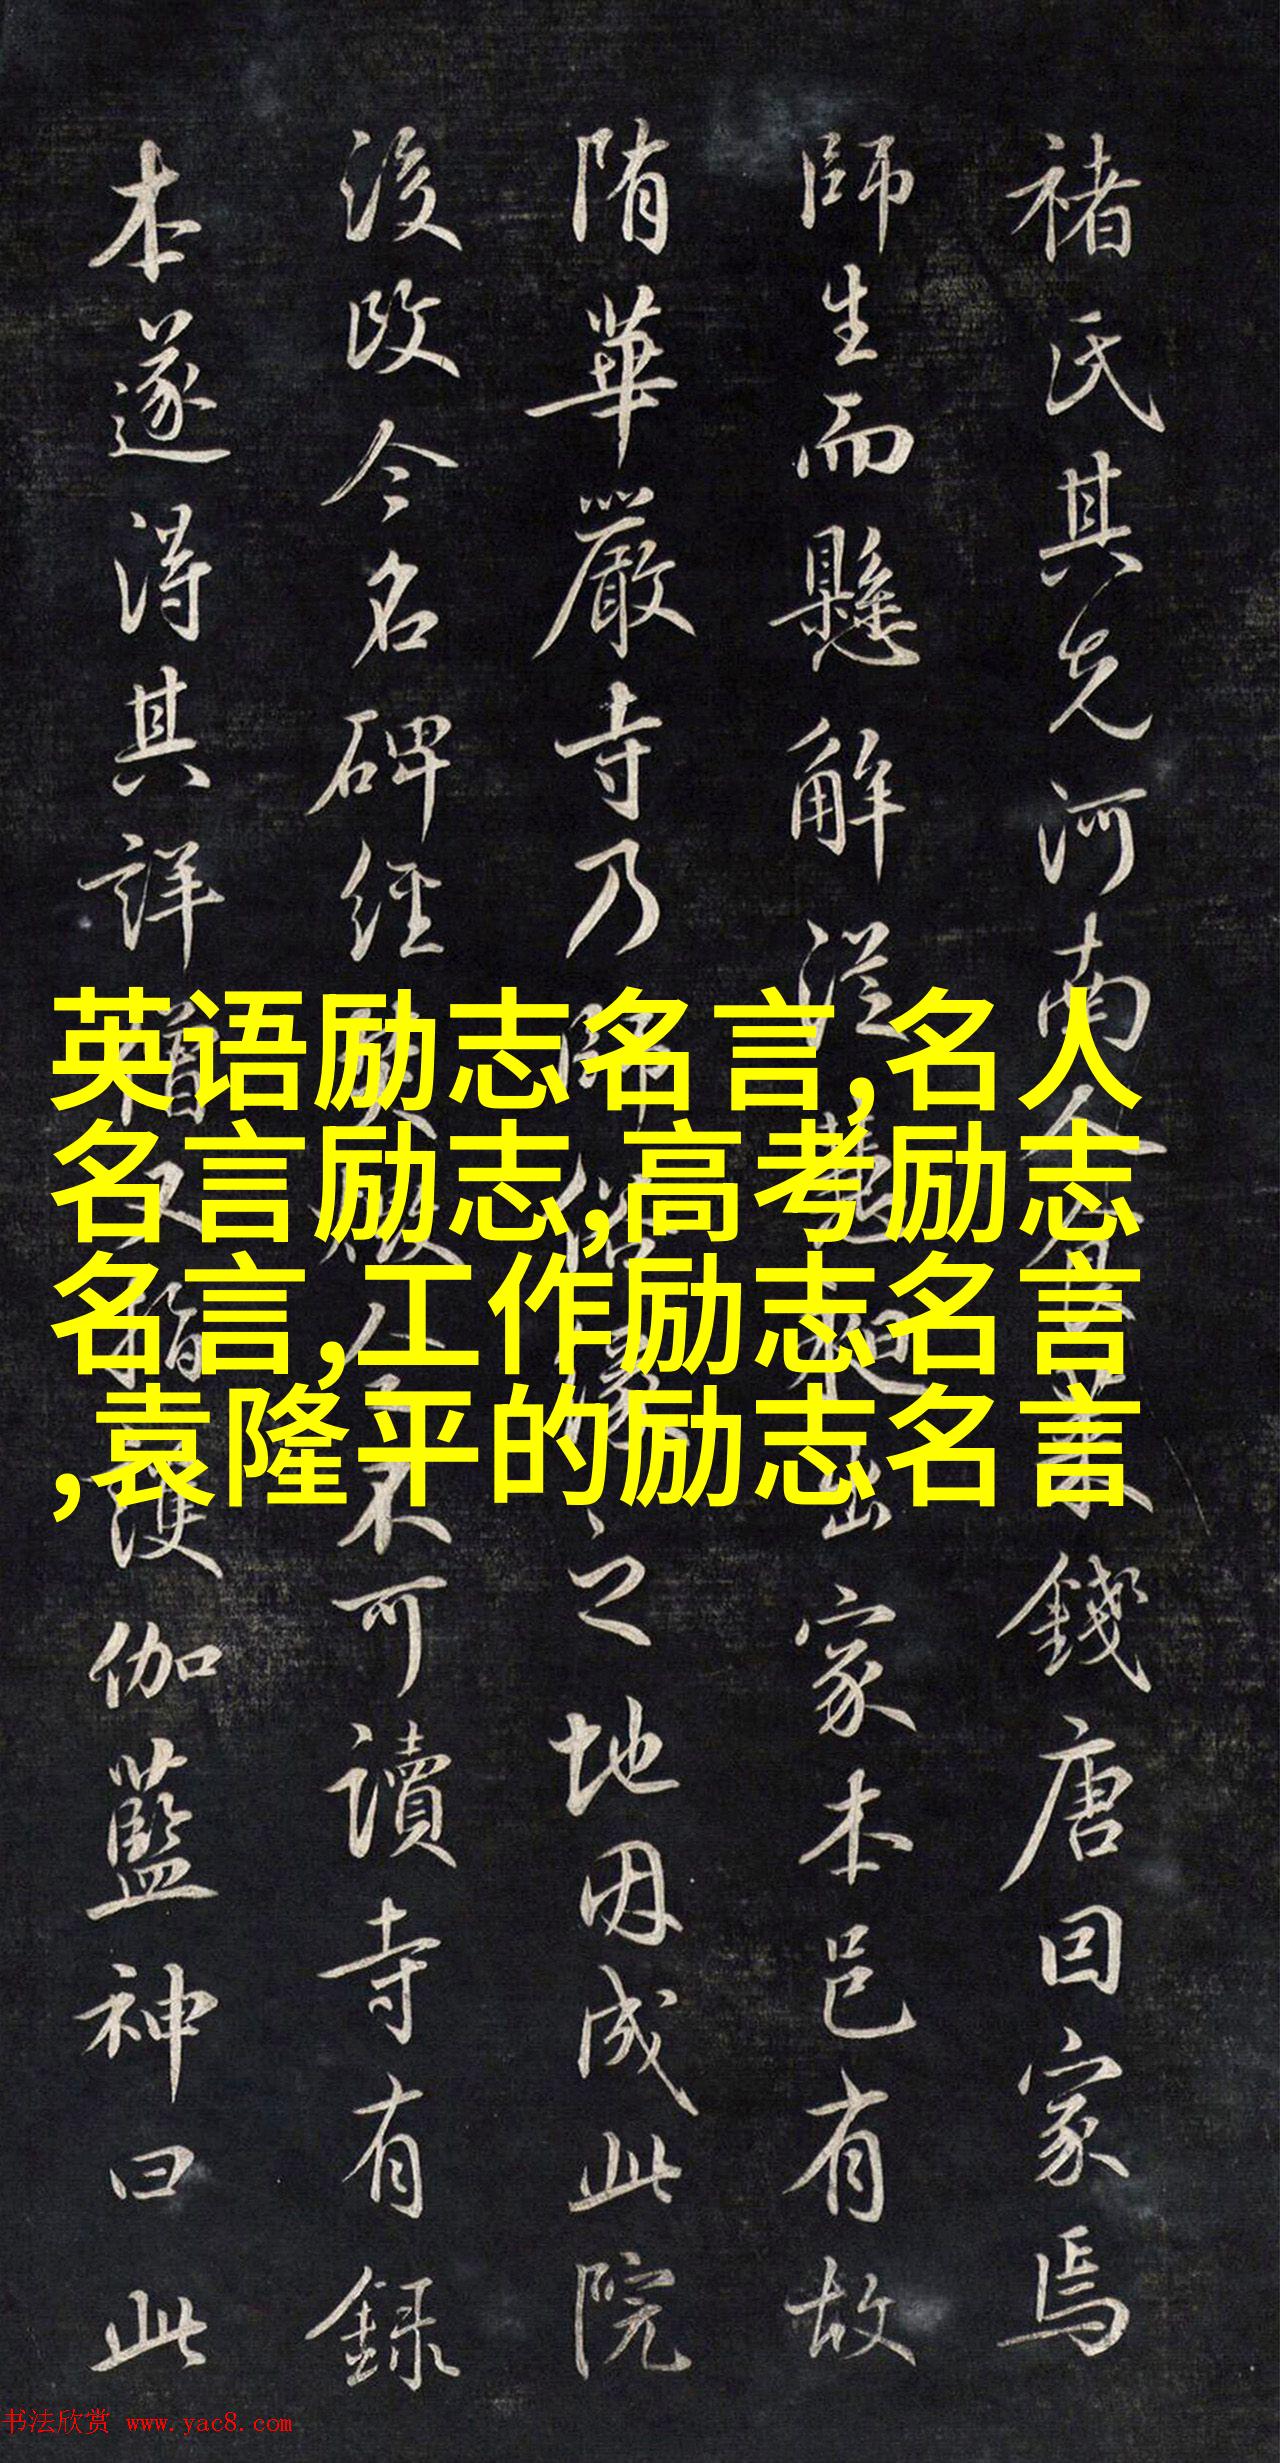 褚氏其先河南人錢唐因家焉
師生而懸解從出家本邑有故
隋華嚴寺乃師之地因成此院
後改今名碑經不可讀寺有録
本遂得其詳僧又指護伽藍神曰此
英语励志名言,名人
名言励志,高考励志
名言,工作励志名言
,袁隆平的励志名言
书法欣赏 www.yac8.com